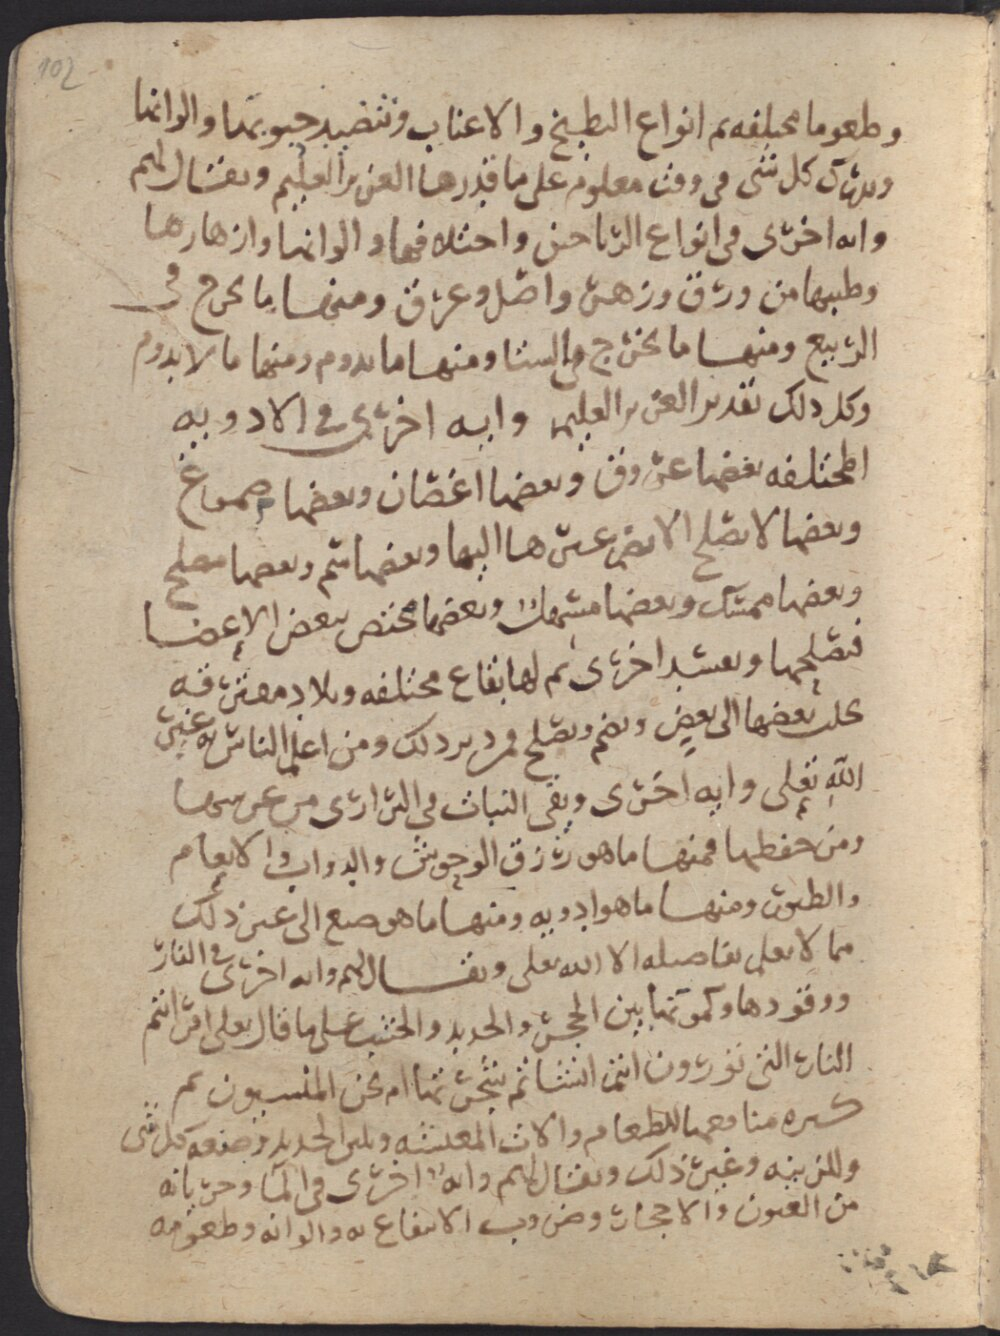 102
وطعوما مختلفه ثم انواع البطيخ والاعناب وتنضيد حبوبها والوانها
كل شى فى وقت معلوم على ما قدرها العزيز العليم ويقال لهم
وايه اخرى فى انواع الرياحين واختلافها والوانها وازهارها
وطيبها من ورق وزهر واصل وعرق ومنها ما يخرج فى
الربيع ومنها ما يخرج فى الشتا ومنها ما يدوم ومنها ما لا يدوم
وكل ذلك تقدير العزيز العليم وايه اخرى فى الادويه
المختلفه بعضها عروق وبعضها اغصان وبعضها صموغ
وبعضها لا يصلح الا بضم غيرها اليها وبعضها سم وبعضها مصلح
وبعضها ممسك وبعضها مسهل وبعضها يختص ببعض الاعضا
فيصلحها ويفسد اخرى ثم لها بقاع مختلفه وبلاد مفترقه
يجلب بعضها الى بعض ويضم ويصلح فمن دبر ذلك ومن اعلم الناس به غير
الله تعلى وايه اخرى وبقى النبات فى البرارى من غرسها
ومن حفظها فمنها ما هو رزق الوحوش والدواب والانعام
والطيور ومنها ما هو ادويه ومنها ما هو صبغ الى غير ذلك
مما لا يعلم تفاصيله الا الله تعلى ويقال لهم وايه اخرى فى النار
ووقودها وكمونها بين الحجر والحديد والخشب على ما قال تعلى افرايتم
النار التى تورون انتم انشاتم شجرتها ام نحن المنشيون ثم
كثيره منافعها للطعام والات المعيشه وتليين الحديد وصنعه كل شى
وللزينه وغير ذلك ويقال لهم وايه اخرى فى الما وجريانه
من العيون والاحجار وضروب الانتفاع به والوانه وطعومه